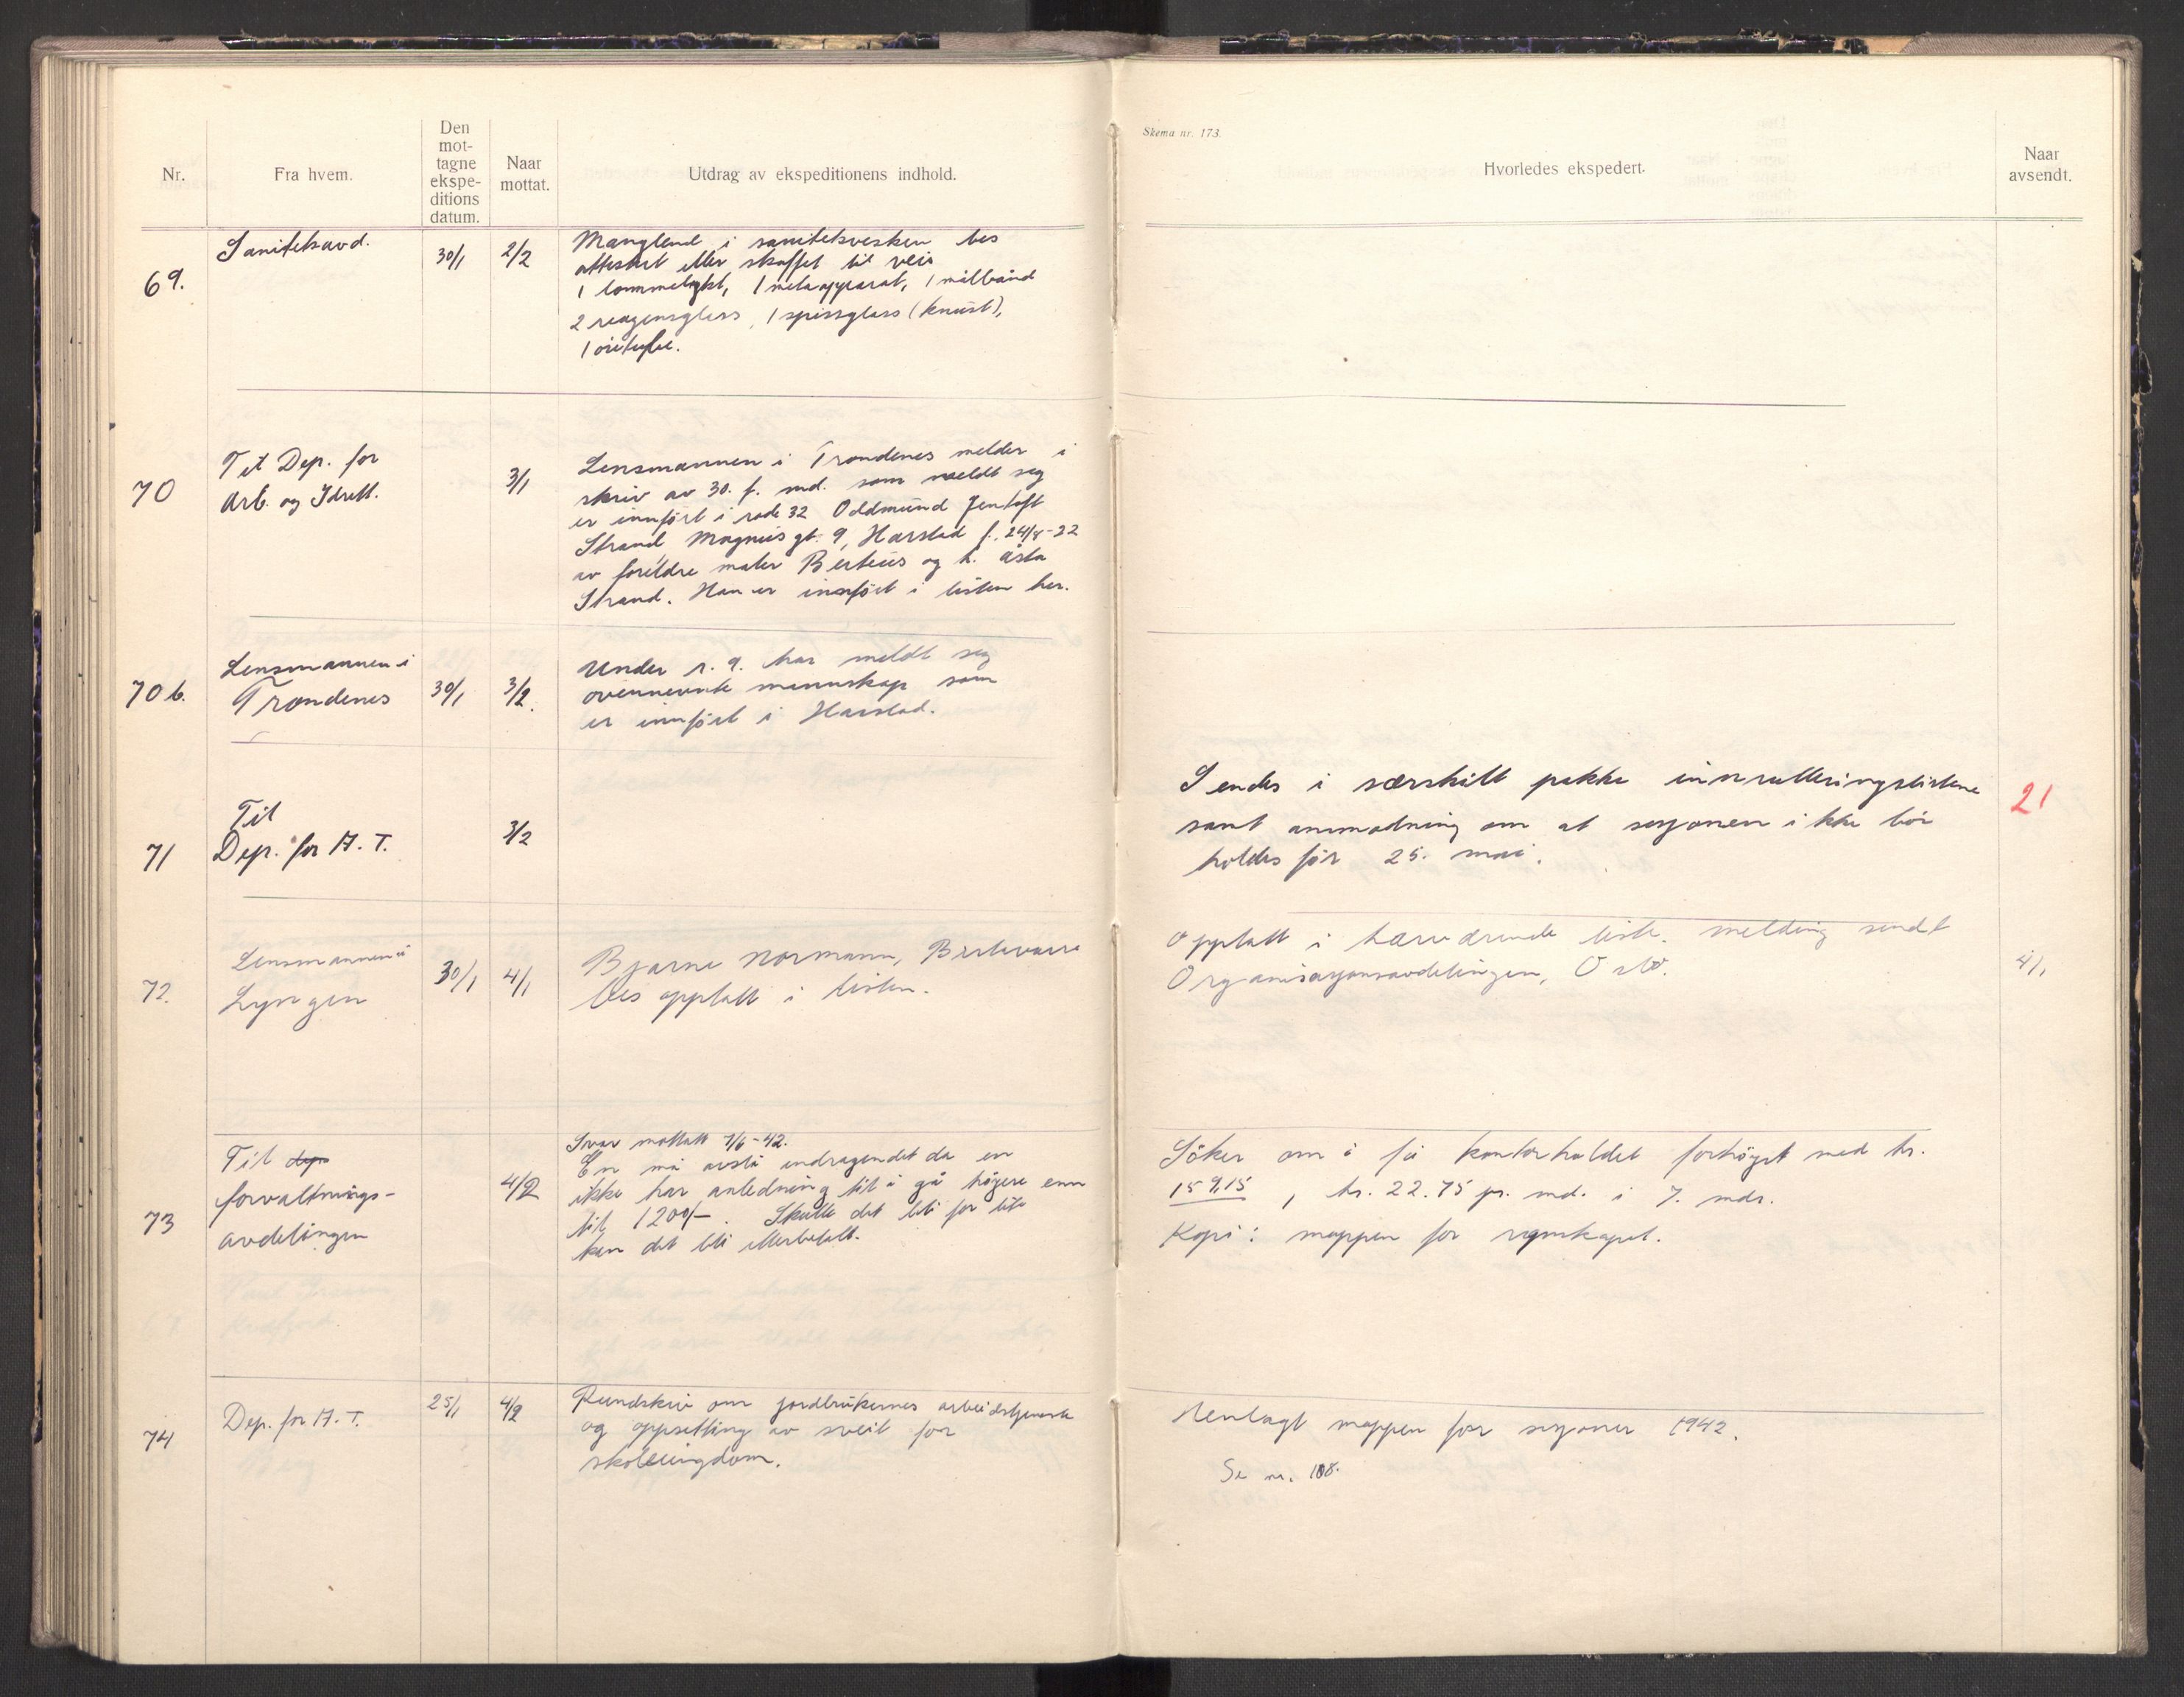 Nr.
Fra hvem.
Den
mot-
tagne
ekspe-
ditions
datum.
Naar
mottat.
Utdrag av ekspeditionens indhold.
Skema nr. 173.
Hvorledes ekspedert.
Naar
avsendt.
69.
Sanitetsavd.
30/1
2/2
Manglend i sanitetsvesken bes
attestert eller skaffet til veie
1 lommelykt, 1 metaapparat, 1 målbånd
2 reagensglass, 1 spissglass (knust),
1
70
Til Dep. for
Arb. og Idrett.
3/1
Lensmannen i Trondenes melder i
skriv av 30. f. md. som meldt seg
er innført i rode 32 Oddmund Jentoft
Strand, Magnusgt. 9, Harstad f. 24/8-22
av foreldre maler Berteus og h. Åsta
Strand. Han er innført i listen her.
70 b.
Lensmannen i
Trondenes
30/1
3/2.
Under r. 9. har meldt seg
ovennevnte mannskap som
er innført i Harstad.
71
Til
Dep. for A. T.
3/2
Sendes i særskilt pakke innrulleringslistene
samt anmodning om at sesjonen ikke bör
holdes før 25. mai.
21
72.
Lensmannen i
Lyngen
30/1
4/1
Bjarne Normann, Birtavarre
bes opptatt i listen.
Opptatt i herværende liste. Melding sendt
Organisasjonsavdelingen, Oslo.
4/1
73
Til dep
forvaltnings-
avdelingen
4/2
Svar mottatt 7/6-42.
En må avslå andragendet da en
ikke har anledning til å gå högere enn
til 1200/-. Skulle det bli for lite
kan det bli etterbetalt.
Söker om å få kontorholdet forhöyet med kr.
159,15, kr. 22.75 pr. md. i 7. mdr.
Kopi: mappen for regnskapet.
74
Dep. for A. T.
25/1
4/2
Rundskriv om jordbrukernes arbeidstjeneste
og oppsetting av sveit for
skoleungdom.
Henlagt mappen for sesjoner 1942.
Se nr. 108.